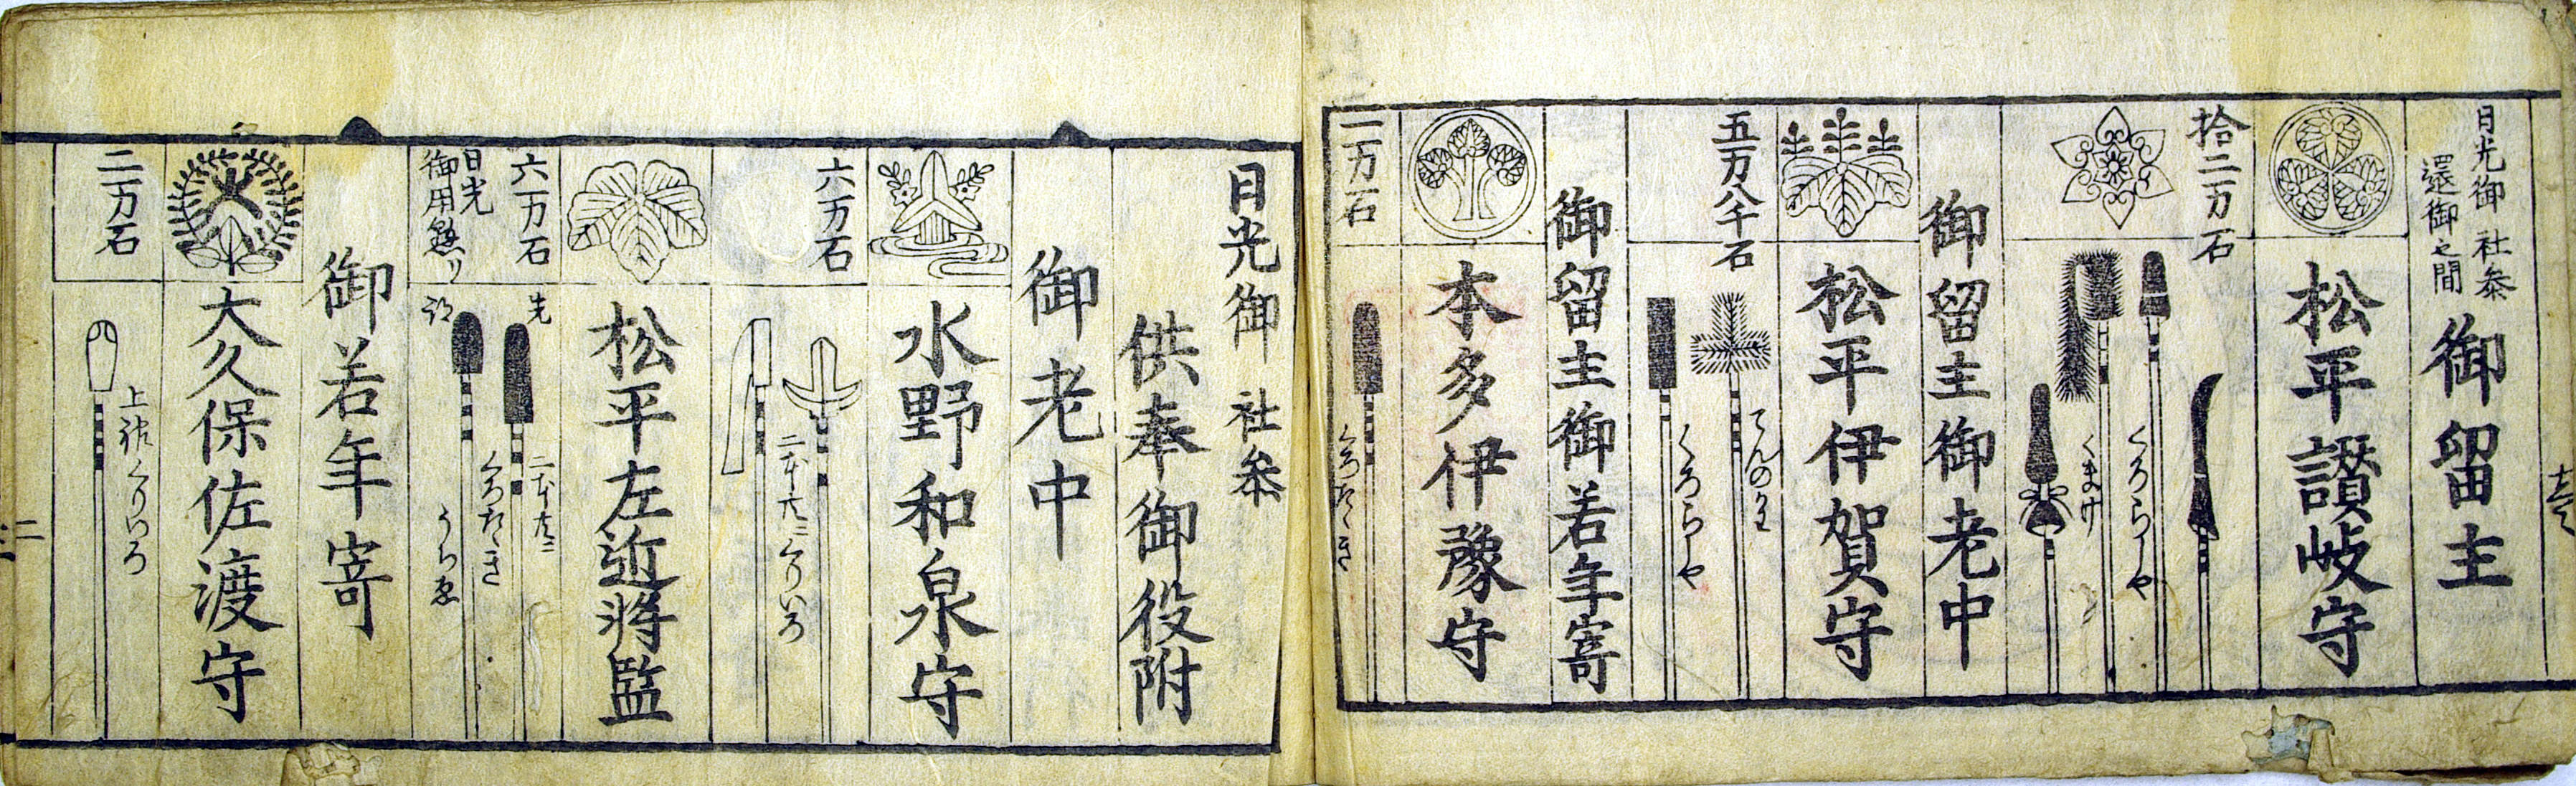 日光御社参
還御之間
御留主
松平讃岐守
拾二万石
くろらしや
くまけ
御留主御老中
松平伊賀守
五万八千石
てんのを
くろらしや
御留主御若年寄
本多伊豫守
一万石
くろたゝき
日光御社参
供奉御役附
御老中
水野和泉守
六万石
二本共ニくりいろ
松平左近将監
六万石
日光
御用懸リ
先
二本共ニ
くろたゝき
うちゑ
御若年寄
大久保佐渡守
二万石
上張くりいろ
二